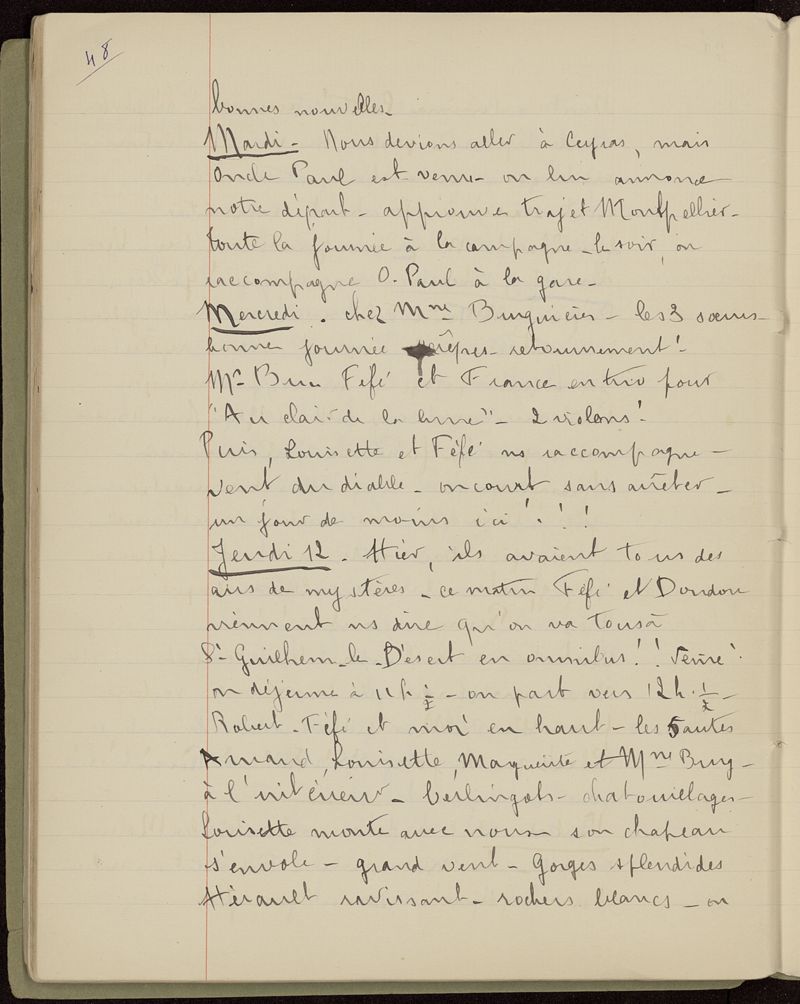 48
bonnes nouvelles_
Mardi - Nous devions aller à Ceyras, mais
Oncle Paul est venu - on lui annonce
notre départ - approuve trajet Montpellier -
toute la journée à la campagne - le soir, on
raccompagne O. Paul à la gare -
Mercredi . chez Mme - les 3 sœurs -
bonne journée vêpres - retournement ! -
Mr Fefé et France en trio pour
"Au clair de la lune" - 2 violons !
Puis, Louisette et Féfé ns raccompagne -
vent du diable - on court sans arrêter -
un jour de moins ici ! ! !
Jeudi 12 . Hier, ils avaient tous des
airs de mystères - ce matin Féfé et Doudou
viennent ns dire qu'on va tous à
St Guilhem-le-Désert en omnibus ! !
on déjeune à 11h ½ - on part vers 12h. ½ -
Robert - Féfé et moi en haut - les 5 autres
Amand, Louisette, Marguerite et Mme Burg -
à l'intérieur - berlingots - chatouillages -
Louisette monte avec nous - son chapeau
s'envole - grand vent - Gorges splendides
Hérault ravissant - rochers blancs - on